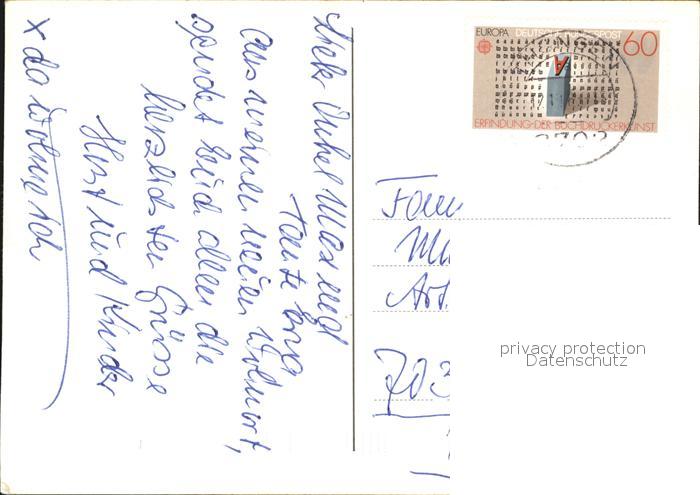 Liebe Onkel Max und
Tante Erna
aus meinen neuen Wohnort,
sendet Euch allen die
herzlichsten Grüsse
Horst und Kinder
x da wohne ich
EUROPA DEUTSCHE BUNDESPOST 60
ERFINDUNG DER BUCHDRUCKERKUNST
Fam
703
privacy protection
Datenschutz